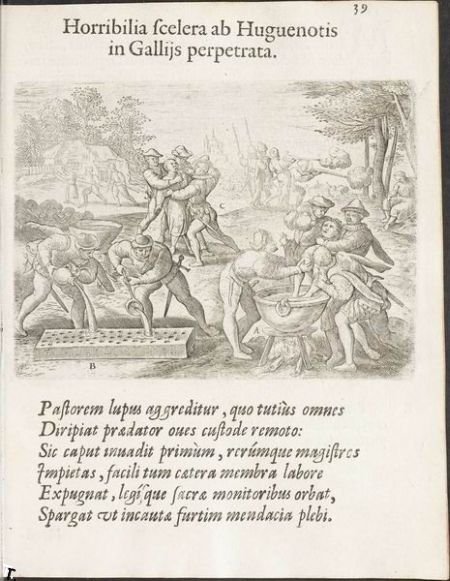 39
Horribilia ſcelera ab Huguenotis
in Gallijs perpetrata.
C
B
Paſtorem lupus aggreditur, quo tutiùs omnes
Diripiat prædator oues cuſtode remoto:
Sic caput inuadit primùm, rerúmque magiſtros
Impietas, facili tum cætera membra labore
Expugnat, legíſque ſacræ monitoribus orbat,
Spargat vt incautæ furtim mendacia plebi.